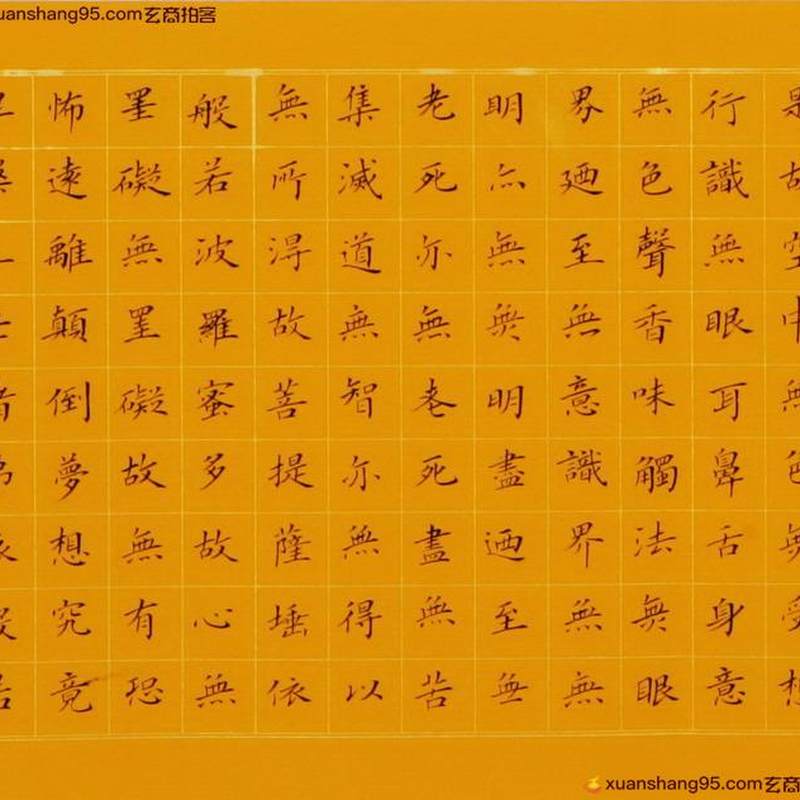 xuanshang95.com玄商拍客
是故空中無色無受想
行識無眼耳鼻舌身意
無色聲香味觸法無眼
界廼至無意識界無無
明亦無無明盡迺至無
老死亦無老死盡無苦
集滅道無智亦無得以
無所得故菩提薩埵依
般若波羅蜜多故心無
罣礙無罣礙故無有恐
怖遠離顛倒夢想究竟
xuanshang95.com玄商